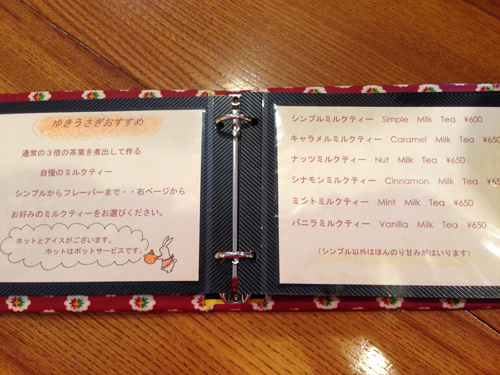 ゆきうさぎおすすめ
通常の３倍の茶葉を煮出して作る
自慢のミルクティー
シンプルからフレーバーまで・・右ページから
お好みのミルクティーをお選びください。
ホットとアイスがございます。
ホットはポットサービスです。
シンプルミルクティー Simple Milk Tea ¥600
キャラメルミルクティー Caramel Milk Tea ¥650
ナッツミルクティー Nut Milk Tea ¥650
シナモンミルクティー Cinnamon Milk Tea ¥650
ミントミルクティー Mint Milk Tea ¥650
バニラミルクティー Vanilla Milk Tea ¥650
（シンプル以外はほんのり甘みがはいります）